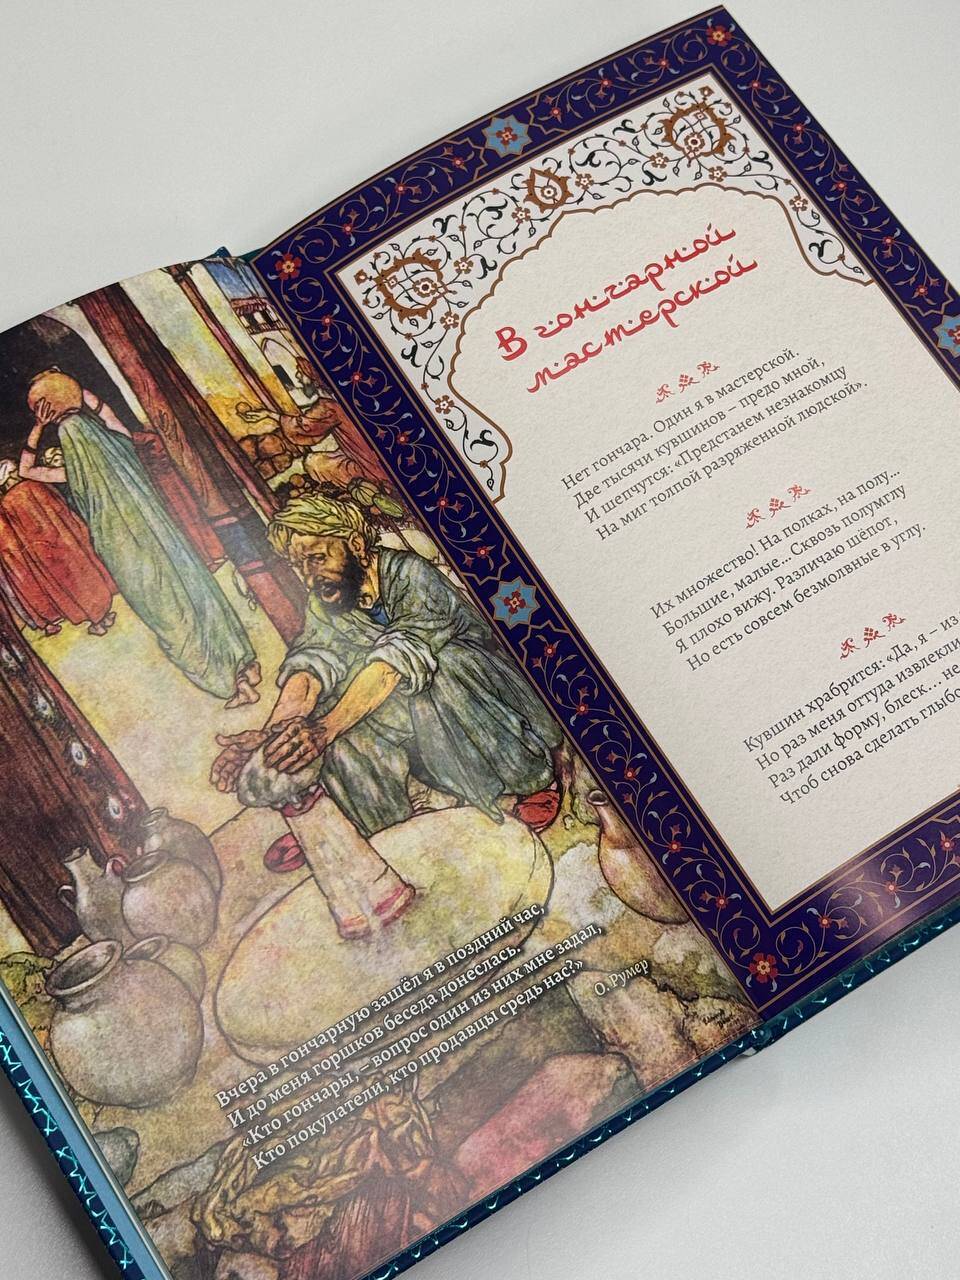 Вчера в гончарную зашёл я в поздний час,
И до меня горшков беседа донеслась.
«Кто гончары, – вопрос один из них мне задал, –
Кто покупатели, кто продавцы средь нас?»
О. Румер
В гончарной
мастерской
Нет гончара. Один я в мастерской.
Две тысячи кувшинов – предо мной,
И шепчутся: «Предстанем незнакомцу
На миг толпой разряженной людской».
Их множество! На полках, на полу...
Большие, малые... Сквозь полумглу
Я плохо вижу. Различаю шёпот,
Но есть совсем безмолвные в углу.
Кувшин храбрится: «Да, я – из
Но раз меня оттуда извлекли
Раз дали форму, блеск... не
Чтоб снова сделать глыбо